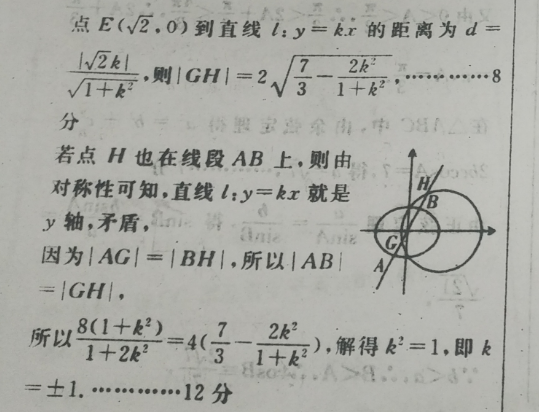 点 E(√2,0) 到直线 l:y=kx 的距离为 d=
|√2k|/√(1+k²),则|GH|=2√(7/3-2k²/(1+k²)),…………8
分
若点 H 也在线段 AB 上,则由
对称性可知,直线 l:y=kx 就是
y 轴,矛盾,
因为|AG|=|BH|,所以|AB|
=|GH|,
H
B
G
A
所以8(1+k²)/(1+2k²)=4(7/3-2k²/(1+k²)),解得 k²=1,即 k
=±1.…………12 分